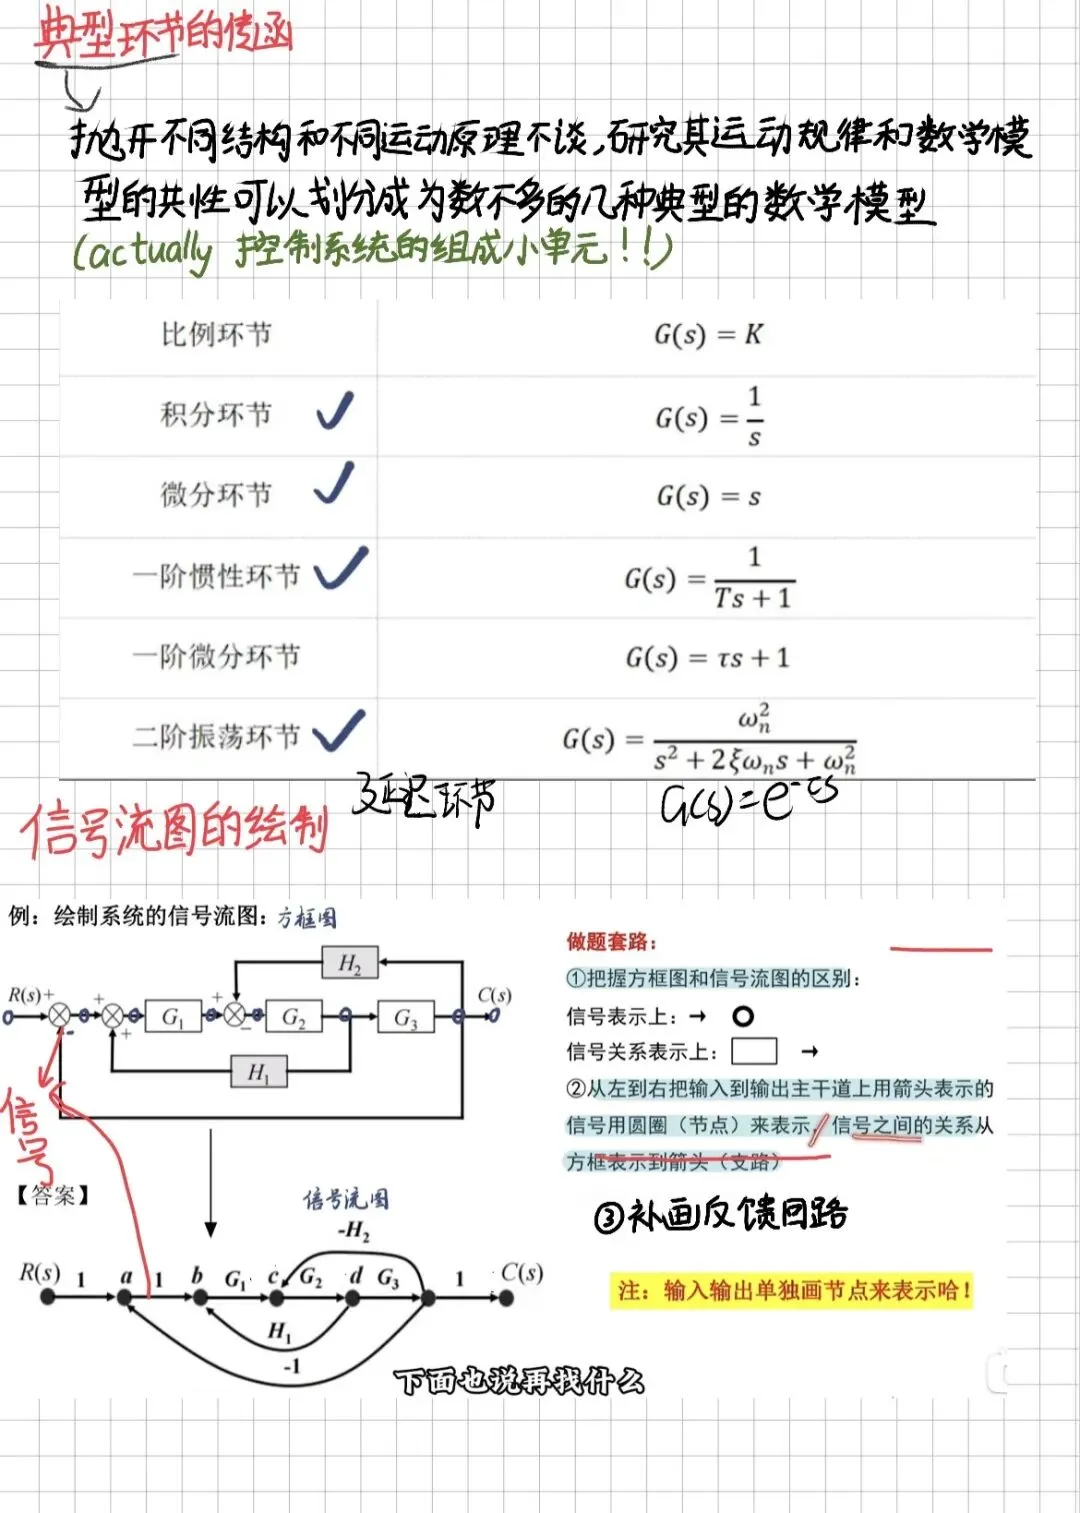 典型环节的传函
抛开不同结构和不同运动原理不谈,研究其运动规律和数学模
型的共性可以划分成为数不多的几种典型的数学模型
(actually 控制系统的组成小单元!!)
比例环节 G(s) = K
积分环节 ✓ G(s) = 1/s
微分环节 ✓ G(s) = s
一阶惯性环节 ✓ G(s) = 1/(Ts + 1)
一阶微分环节 G(s) = τs + 1
二阶振荡环节 ✓ G(s) = ωₙ²/(s² + 2ξωₙs + ωₙ²)
延迟环节 G(s)=e^-τs
信号流图的绘制
例：绘制系统的信号流图：方框图
H₂
R(s) + + + C(s)
G₁ G₂ G₃
- + −
H₁
信号
【答案】
信号流图
-H₂
R(s) 1 a 1 b G₁ c G₂ d G₃ 1 C(s)
H₁
-1
做题套路：
①把握方框图和信号流图的区别：
信号表示上：→ O
信号关系表示上：□ →
②从左到右把输入到输出主干道上用箭头表示的
信号用圆圈（节点）来表示，信号之间的关系从
方框表示到箭头（支路）
③补画反馈回路
注：输入输出单独画节点来表示哈！
下面也说再找什么